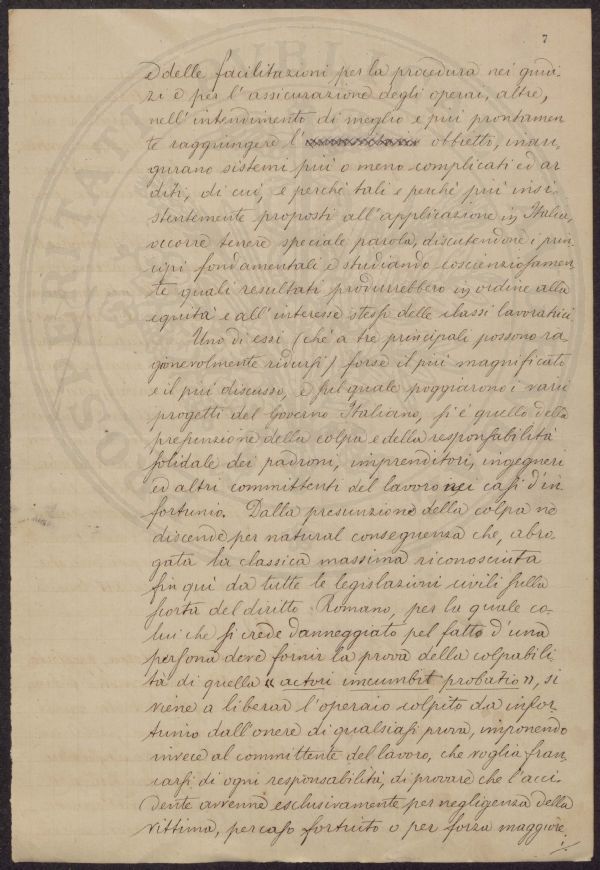 7
e delle facilitazioni per la procedura nei giudi-
zi e per l'assicurazione degli operai, altre,
nell'intendimento di meglio e più prontamen
te raggiungere l' obbietto, inau-
gurano sistemi più o meno complicati ed ar
diti, di cui, e perchè tali e perchè più insi-
stentemente proposti all'applicazione in Italia,
occorre tenere speciale parola, discutendone i prin-
cipi fondamentali e studiando coscienziosamen
te quali resultati produrrebbero in ordine alla
equità e all'interesse stesso delle classi lavoratrici
Uno di essi (chè a tre principali possono ra-
gionevolmente ridursi) forse il più magnificato
e il più discusso, e sul quale poggiarono i varii
progetti del Governo Italiano, si è quello della
presunzione della colpa e della responsabilità
solidale dei padroni, imprenditori, ingegneri
ed altri committenti del lavoro nei casi d'in
fortunio. Dalla presunzione della colpa ne
discende per natural conseguenza che, abro-
gata la classica massima riconosciuta
fin quì da tutte le legislazioni civili sulla
scorta del diritto Romano, per la quale co-
lui che si crede danneggiato pel fatto d'una
persona deve fornir la prova della colpabili
tà di quella « actori incumbit probatio », si
viene a liberar l'operaio colpito da infor-
tunio dall'onere di qualsiasi prova, imponendo
invece al committente del lavoro, che voglia fran-
carsi di ogni responsabilità, di provare che l'acci-
dente avvenne esclusivamente per negligenza della
vittima, per caso fortuito o per forza maggiore